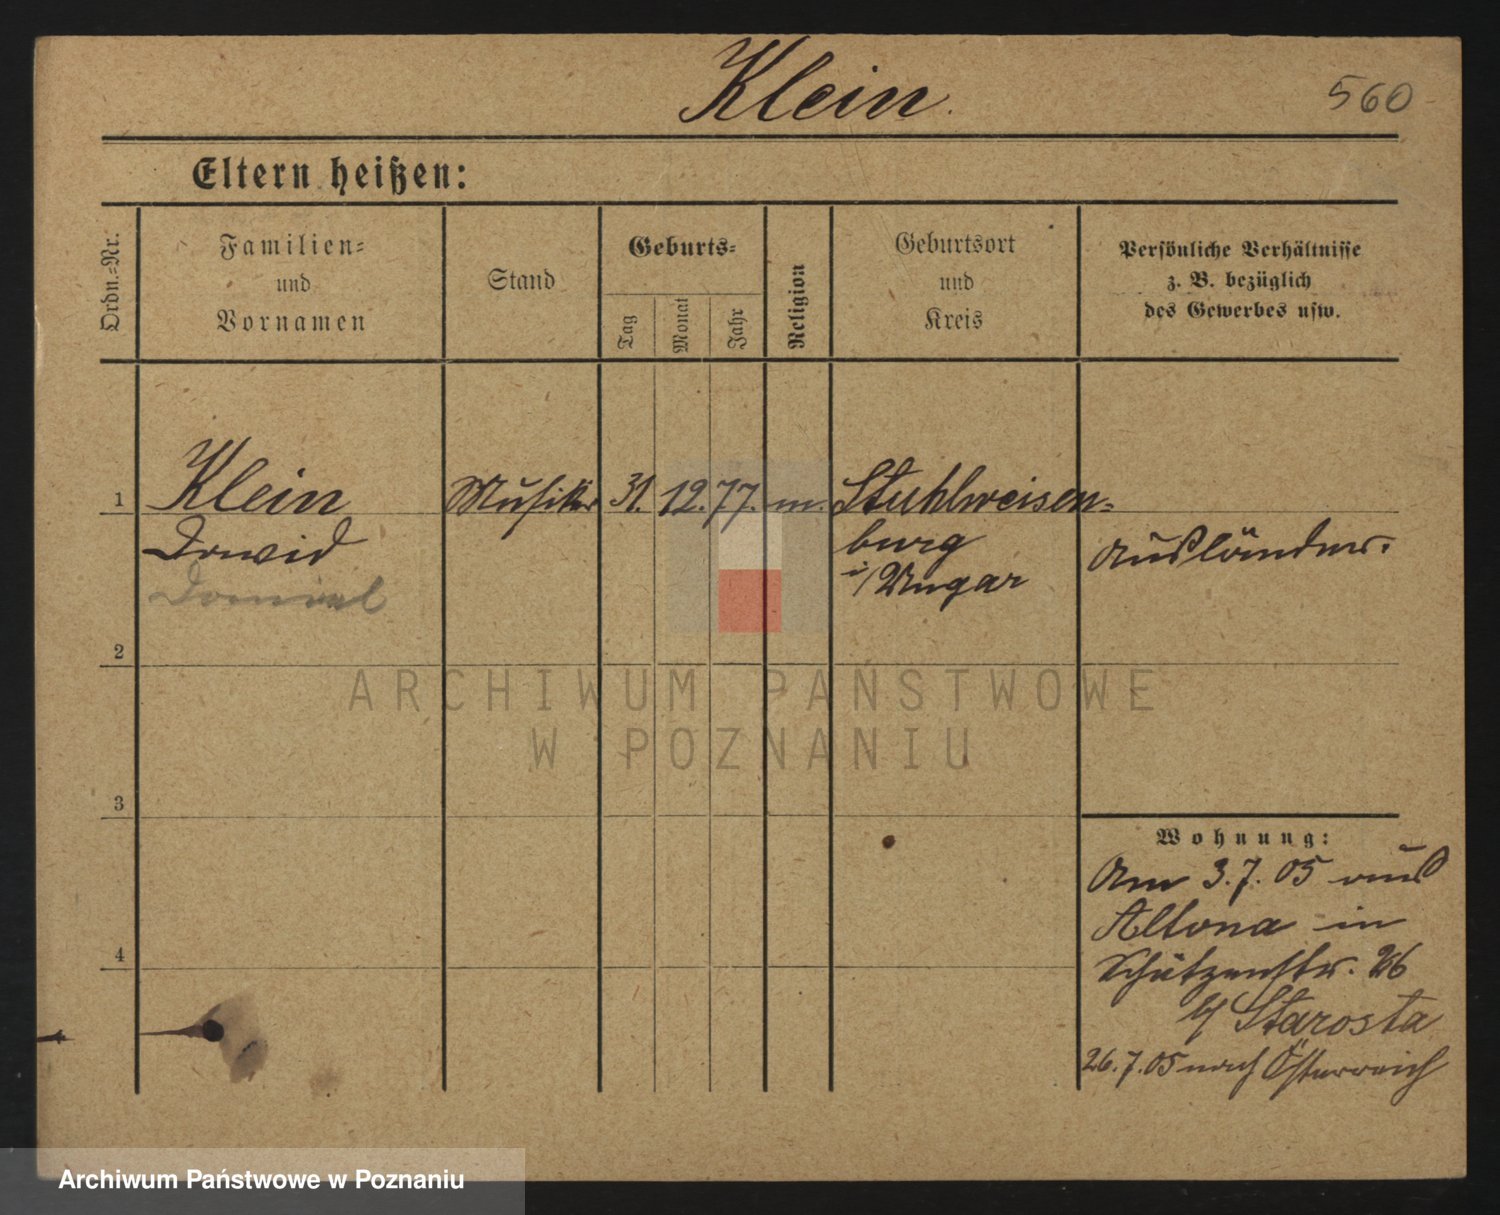 Klein.
560
Eltern heißen:
Ordn.=Nr.
Familien=
und
Vornamen
Stand
Geburts=
Tag
Monat
Jahr
Religion
Geburtsort
und
Kreis
Persönliche Verhältnisse
z. B. bezüglich
des Gewerbes usw.
1
Klein
David
Musiker
31. 12. 77. m.
Stuhlweisen=
burg
i/Ungar
Ausländer.
2
3
4
Wohnung:
Am 3. 7. 05 aus
Altona in
Schützenstr. 26
b/ Starosta
26. 7. 05 nach Österreich
ARCHIWUM PAŃSTWOWE
W POZNANIU
Archiwum Państwowe w Poznaniu